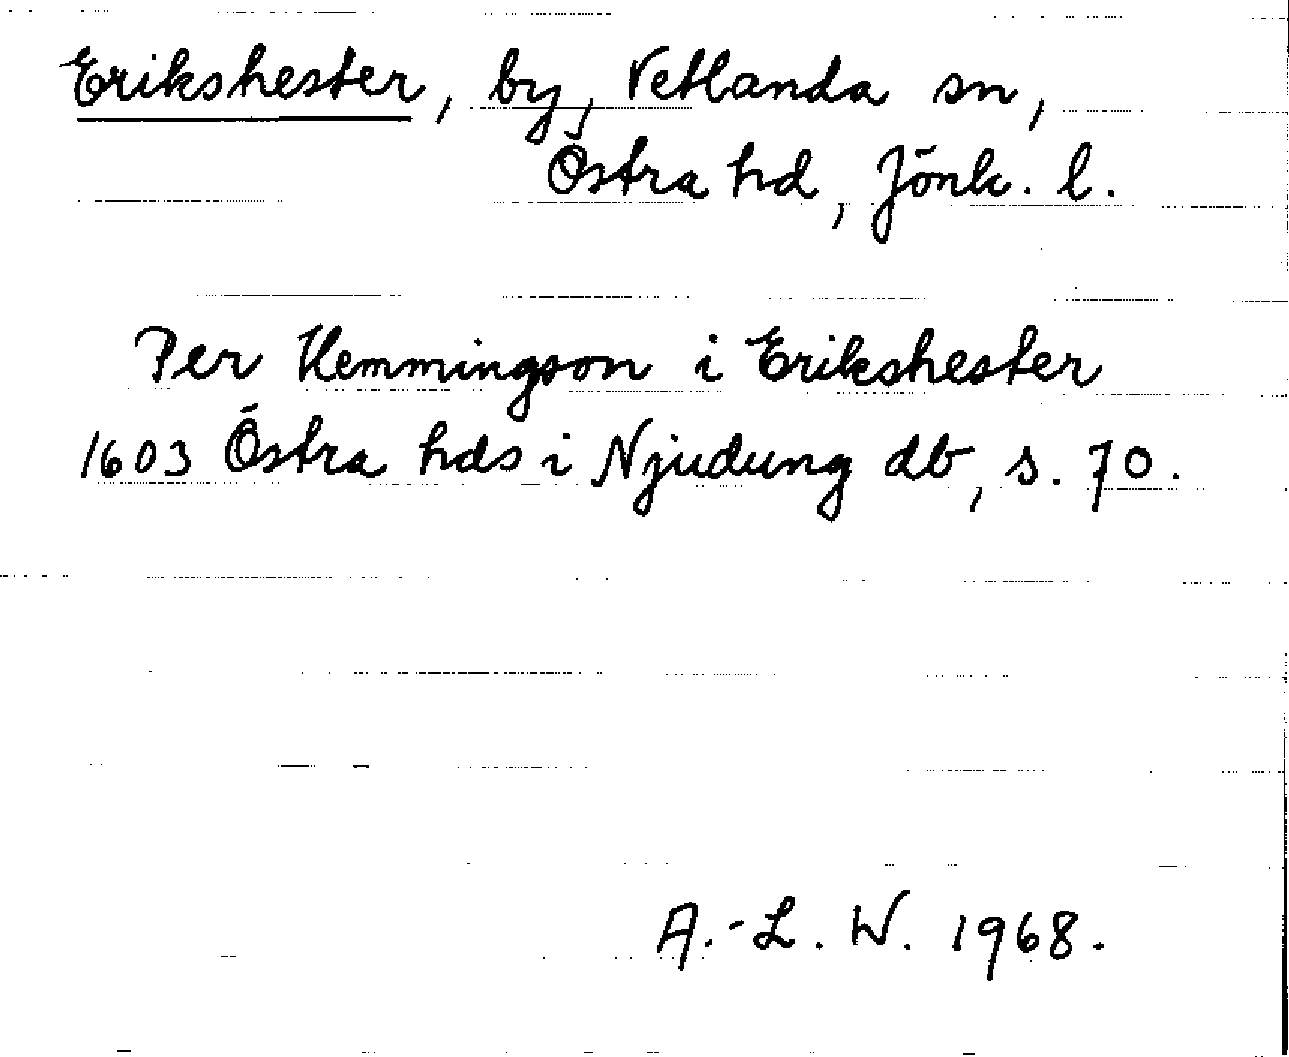 Erikshester, by, Vetlanda sn,
Östra hd, Jönk. l.
Per Hemmingson i Erikshester
1603 Östra hds i Njudung db, s. 70.
A.-L. W. 1968.